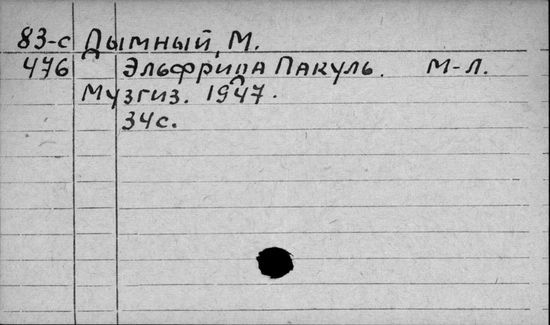 83-с Дымный, М.
476 Эльфрида Пакуль. М-Л.
Музгиз. 1947.
34с.